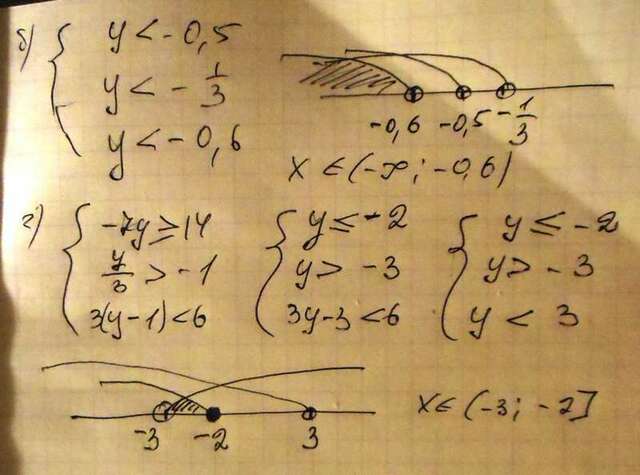 б) { y < -0,5
y < -1/3
y < -0,6
-0,6 -0,5 -1/3
x ∈ (-∞; -0,6)
г) { -7y ≥ 14 { y ≤ -2 { y ≤ -2
y/3 > -1 y > -3 y > -3
3(y-1) < 6 3y-3 < 6 y < 3
-3 -2 3
x ∈ (-3; -2]